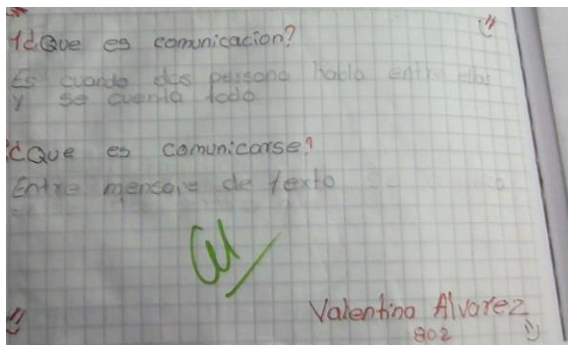 1¿Que es comunicacion?
Es cuando dos persona habla entre ellas
y se cuenta todo
¿Que es comunicarse?
Entre mensaje de texto
Valentina Alvarez
802